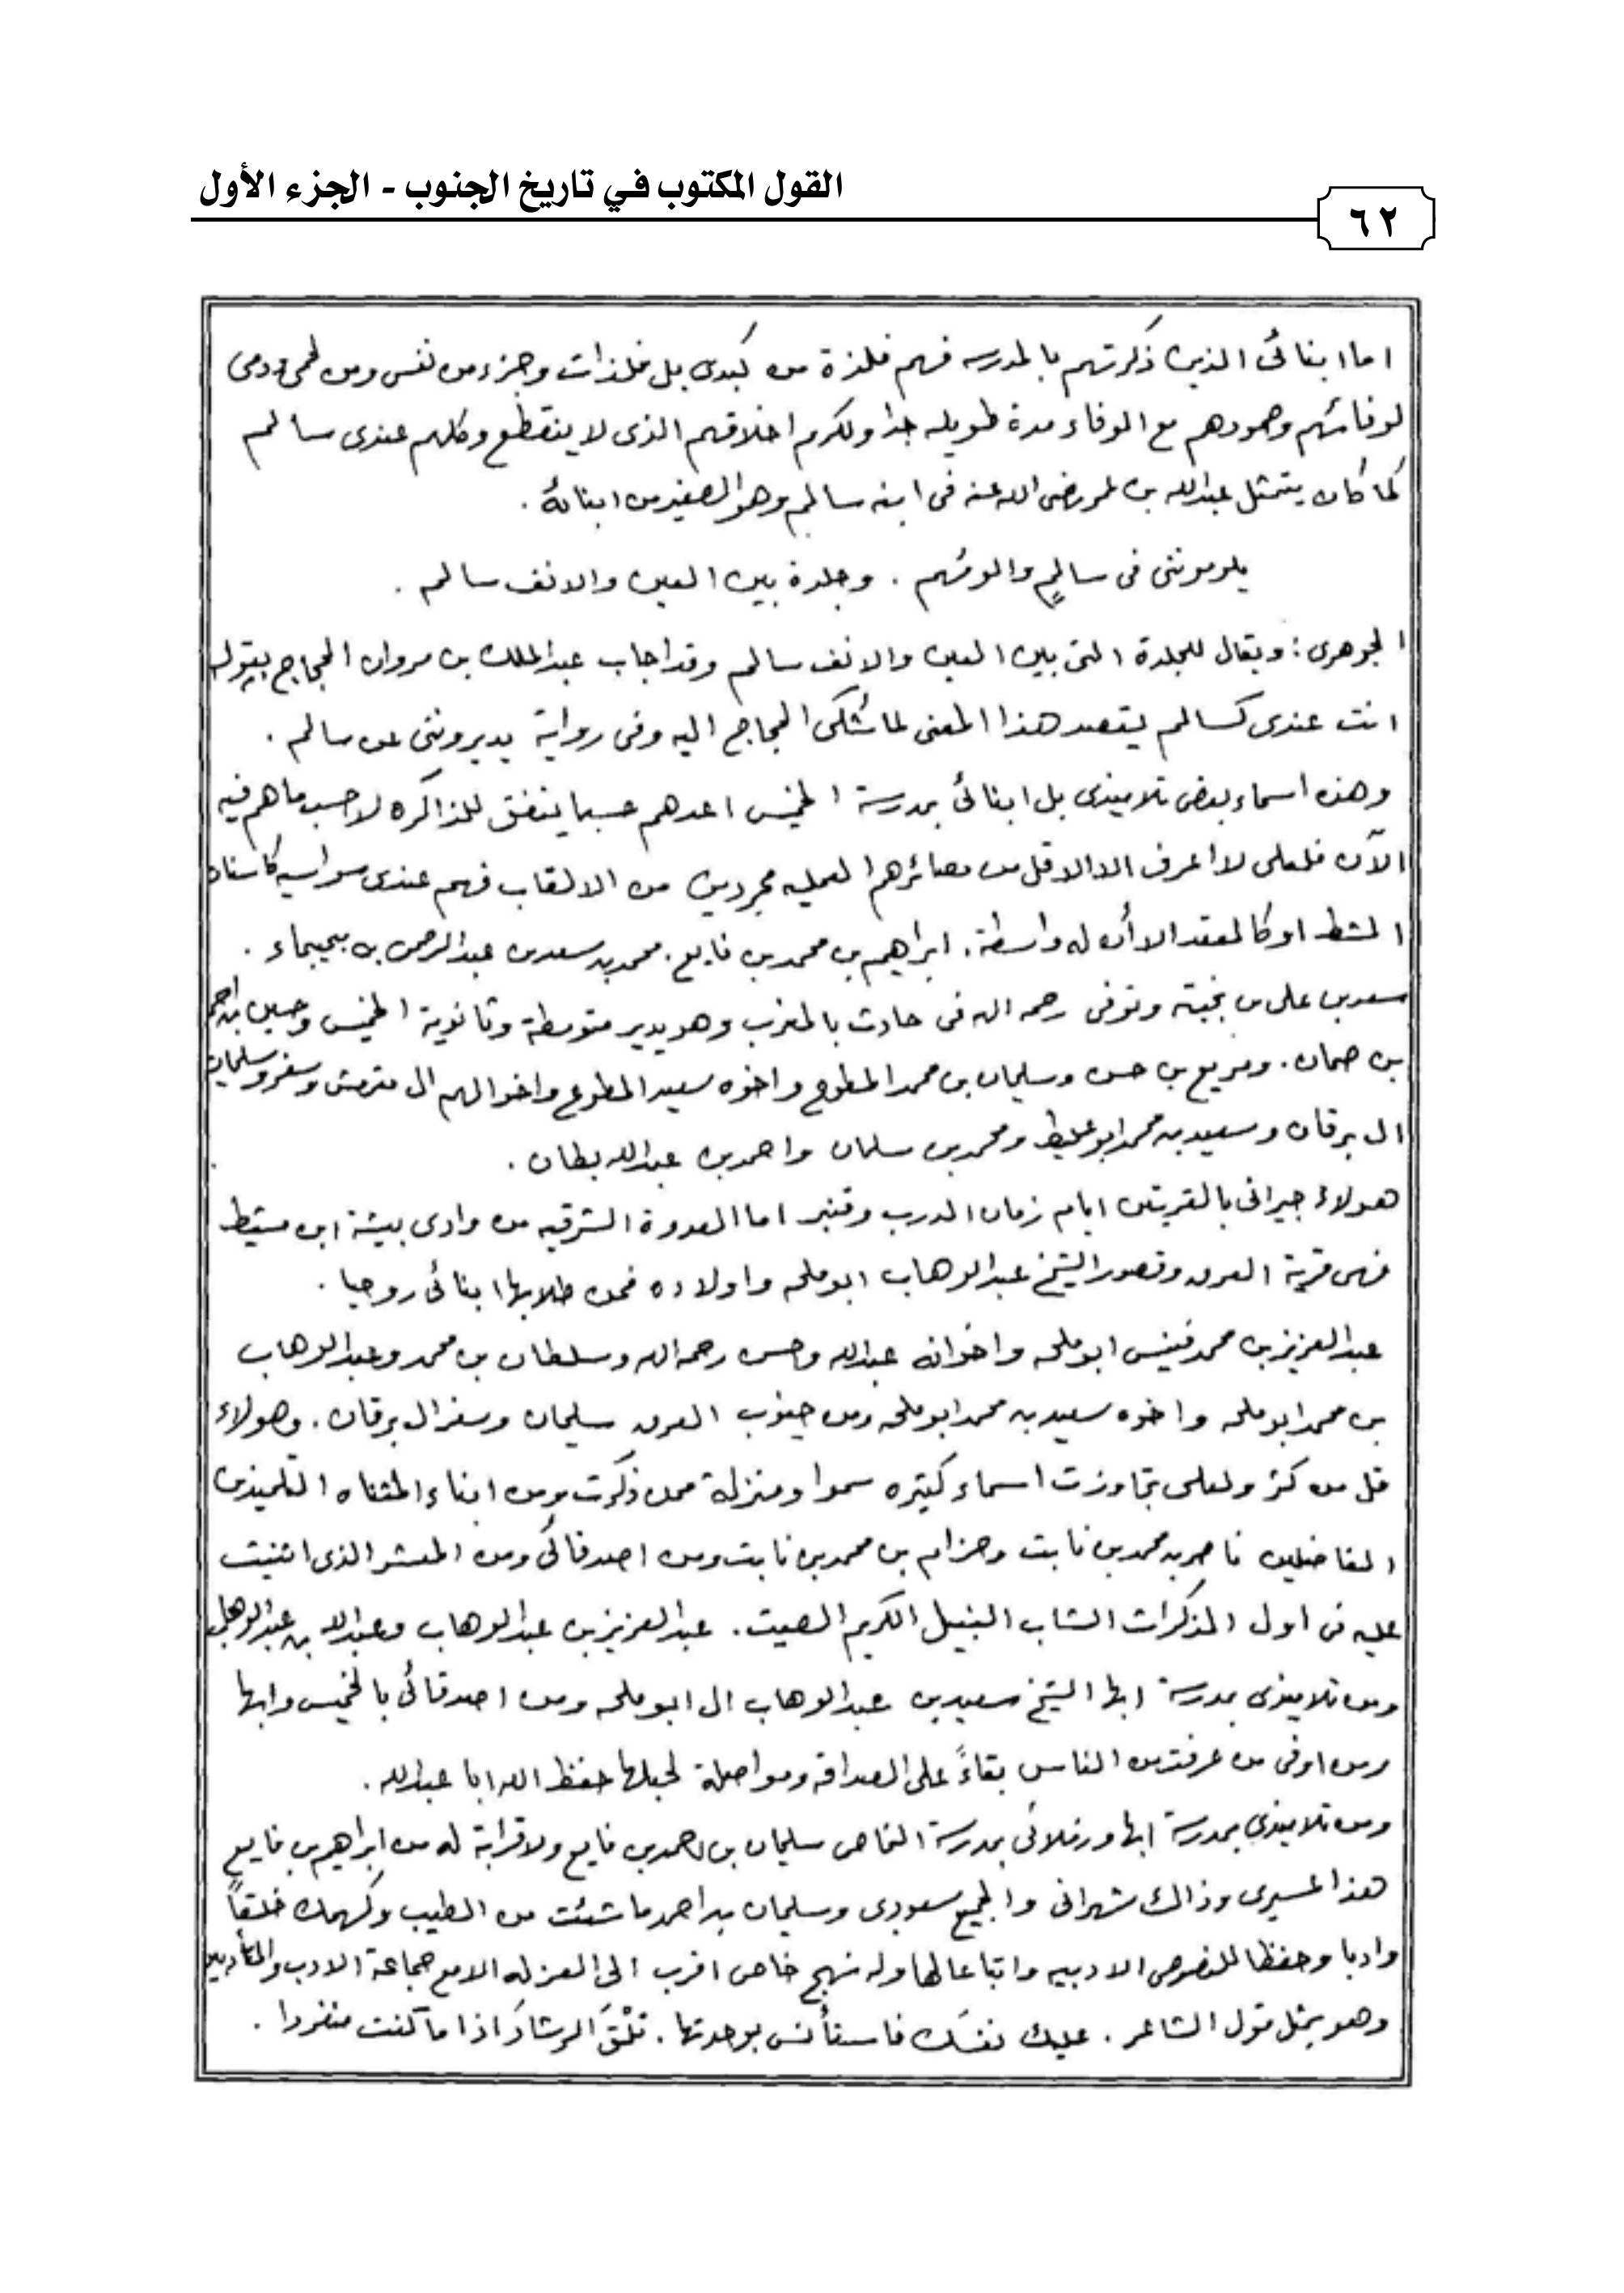 القول المكتوب في تاريخ الجنوب - الجزء الأول
٦٢
اما ابنائى الذين ذكرتهم بالمدرسه فهم فلذة من كبدى بل فلذات وجزء من نفسى ومن لحمى ودمى
لوفائهم وصمودهم مع الوفاء مدة طويله جدا ولكرم اخلاقهم الذى لا ينقطع وكلهم عندى سالم
كما كان يتمثل عبدالله بن عمر رضى الله عنه فى ابنه سالم وهو الصغير من ابنائه .
يلوموننى فى سالمٍ والومهم . وجلدة بين العين والانف سالم .
الجوهرى : ويقال للجلدة التى بين العين والانف سالم وقد اجاب عبدالملك بن مروان الحجاج بقوله
انت عندى كسالم يقصد هذا المعنى لما شكى الحجاج اليه وفى رواية يديروننى عن سالم .
وهذه اسماء بعض تلاميذى بل ابنائى بمدرسة الخميس اعدهم حسبما يتفق للذاكره لا حسب ما هم فيه
الآن فلعلى لا اعرف الا الاقل من مصائرهم العمليه مجردين من الالقاب فهم عندى سواسيه كأسنان
المشط او كالعقد الا أن له واسطة . ابراهيم بن محمد بن فايع . محمد بن سعد بن عبدالرحمن بن
سعد بن على بن وتوفى رحمه الله فى حادث بالمغرب وهو يدير متوسطة وثانوية الخميس وحسين بن احمد
بن حمان . ومريع بن حسن وسليمان بن محمد المطوع واخوه سعيد المطوع واخوالهم ال وسفر وسليمان
ال برقان وسعيد بن محمد ابو ومحمد بن سلمان واحمد بن عبدالله بطان .
هولاء جيرانى بالقريتين ايام زمان الدرب وقنبر اما العدوة الشرقيه من وادى بيشة ابن مشيط
فهى قرية العرق وقصور الشيخ عبدالوهاب ابو ملحه واولاده فمن طلابها ابنائى روحيا .
عبدالعزيز بن محمد ابو ملحه واخوانه عبدالله وحسن رحمه الله وسلطان بن محمد وعبدالوهاب
بن محمد ابو ملحه واخوه سعيد بن محمد ابو ملحه ومن جنوب العرق سليمان وسفر ال برقان . وهولاء
قل من كثر ولعلى تجاوزت اسماء كثيره سموا ومنزلة ممن ذكرت ومن ابناء المثناه التلميذين
الفاضلين ناصر بن محمد بن ثابت وحزام بن محمد بن ثابت ومن اصدقائى ومن المعشر الذى اثنيت
عليه فى اول المذكرات الشاب النبيل الكريم الصيت . عبدالعزيز بن عبدالوهاب وعبدالله بن عبدالوهاب
ومن تلاميذى بمدرسة ابها الشيخ سعيد بن عبدالوهاب ال ابو ملحه ومن اصدقائى بالخميس وابها
ومن اوفى من عرفت من الناس بقاءً على الصداقه ومواصلة لحبلها حفظ الله ابا عبدالله .
ومن تلاميذى بمدرسة ابها وزملائى بمدرسة سليمان بن احمد بن فايع ولا قرابة له من ابراهيم بن فايع
هذا عسيرى وذاك شهرانى والجميع سعودى وسليمان بن احمد ما شئت من الطيب وكهمك خلقاً
وادبا وحفظا للنصوص الادبيه واتباعا لها وله نهج خاص اقرب الى العزله الا مع جماعة الادب والمتأدبين
وهو يمثل قول الشاعر . عليك نفسَك فاستأنس بوحدتها . تلْقَ الرشادَ اذا ما كنت منفردا .